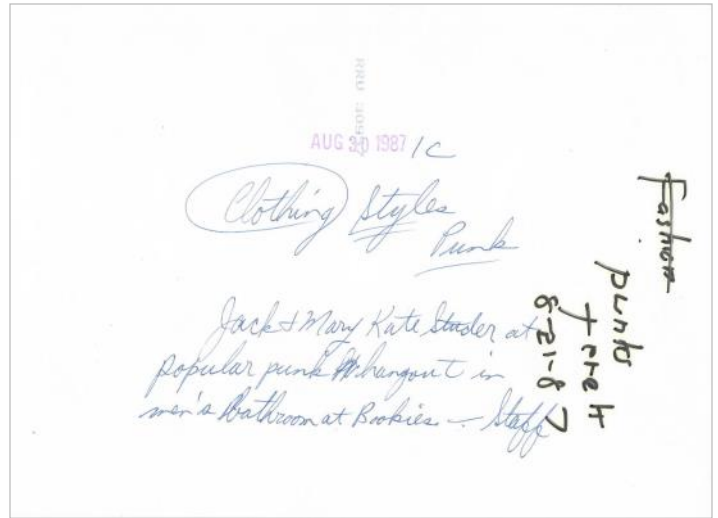 AUG 30 1987 1C
Clothing Styles
Punk
Jack & Mary Kate Studer at
popular punk hangout in
men's bathroom at Bookies — Staff
Fashion
punks
8-21-87